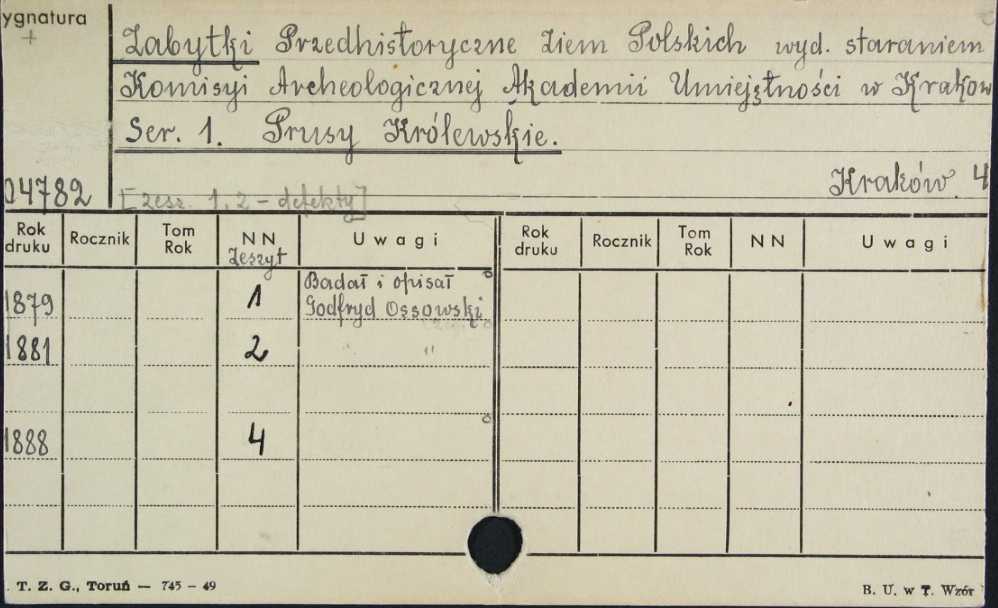 ygnatura
+
Zabytki Przedhistoryczne Ziem Polskich wyd. staraniem
Komisyi Archeologicznej Akademii Umiejętności w Krakow
Ser. 1. Prusy Królewskie.
Kraków 4
04782 [zesz. 1, 2 - defekty]
Rok druku Rocznik Tom Rok NN Zeszyt Uwagi Rok druku Rocznik Tom Rok NN Uwagi
1879 1 Badał i opisał
Godfryd Ossowski
1881 2 " "
1888 4
. T. Z. G., Toruń — 745 - 49
B. U. w T. Wzór